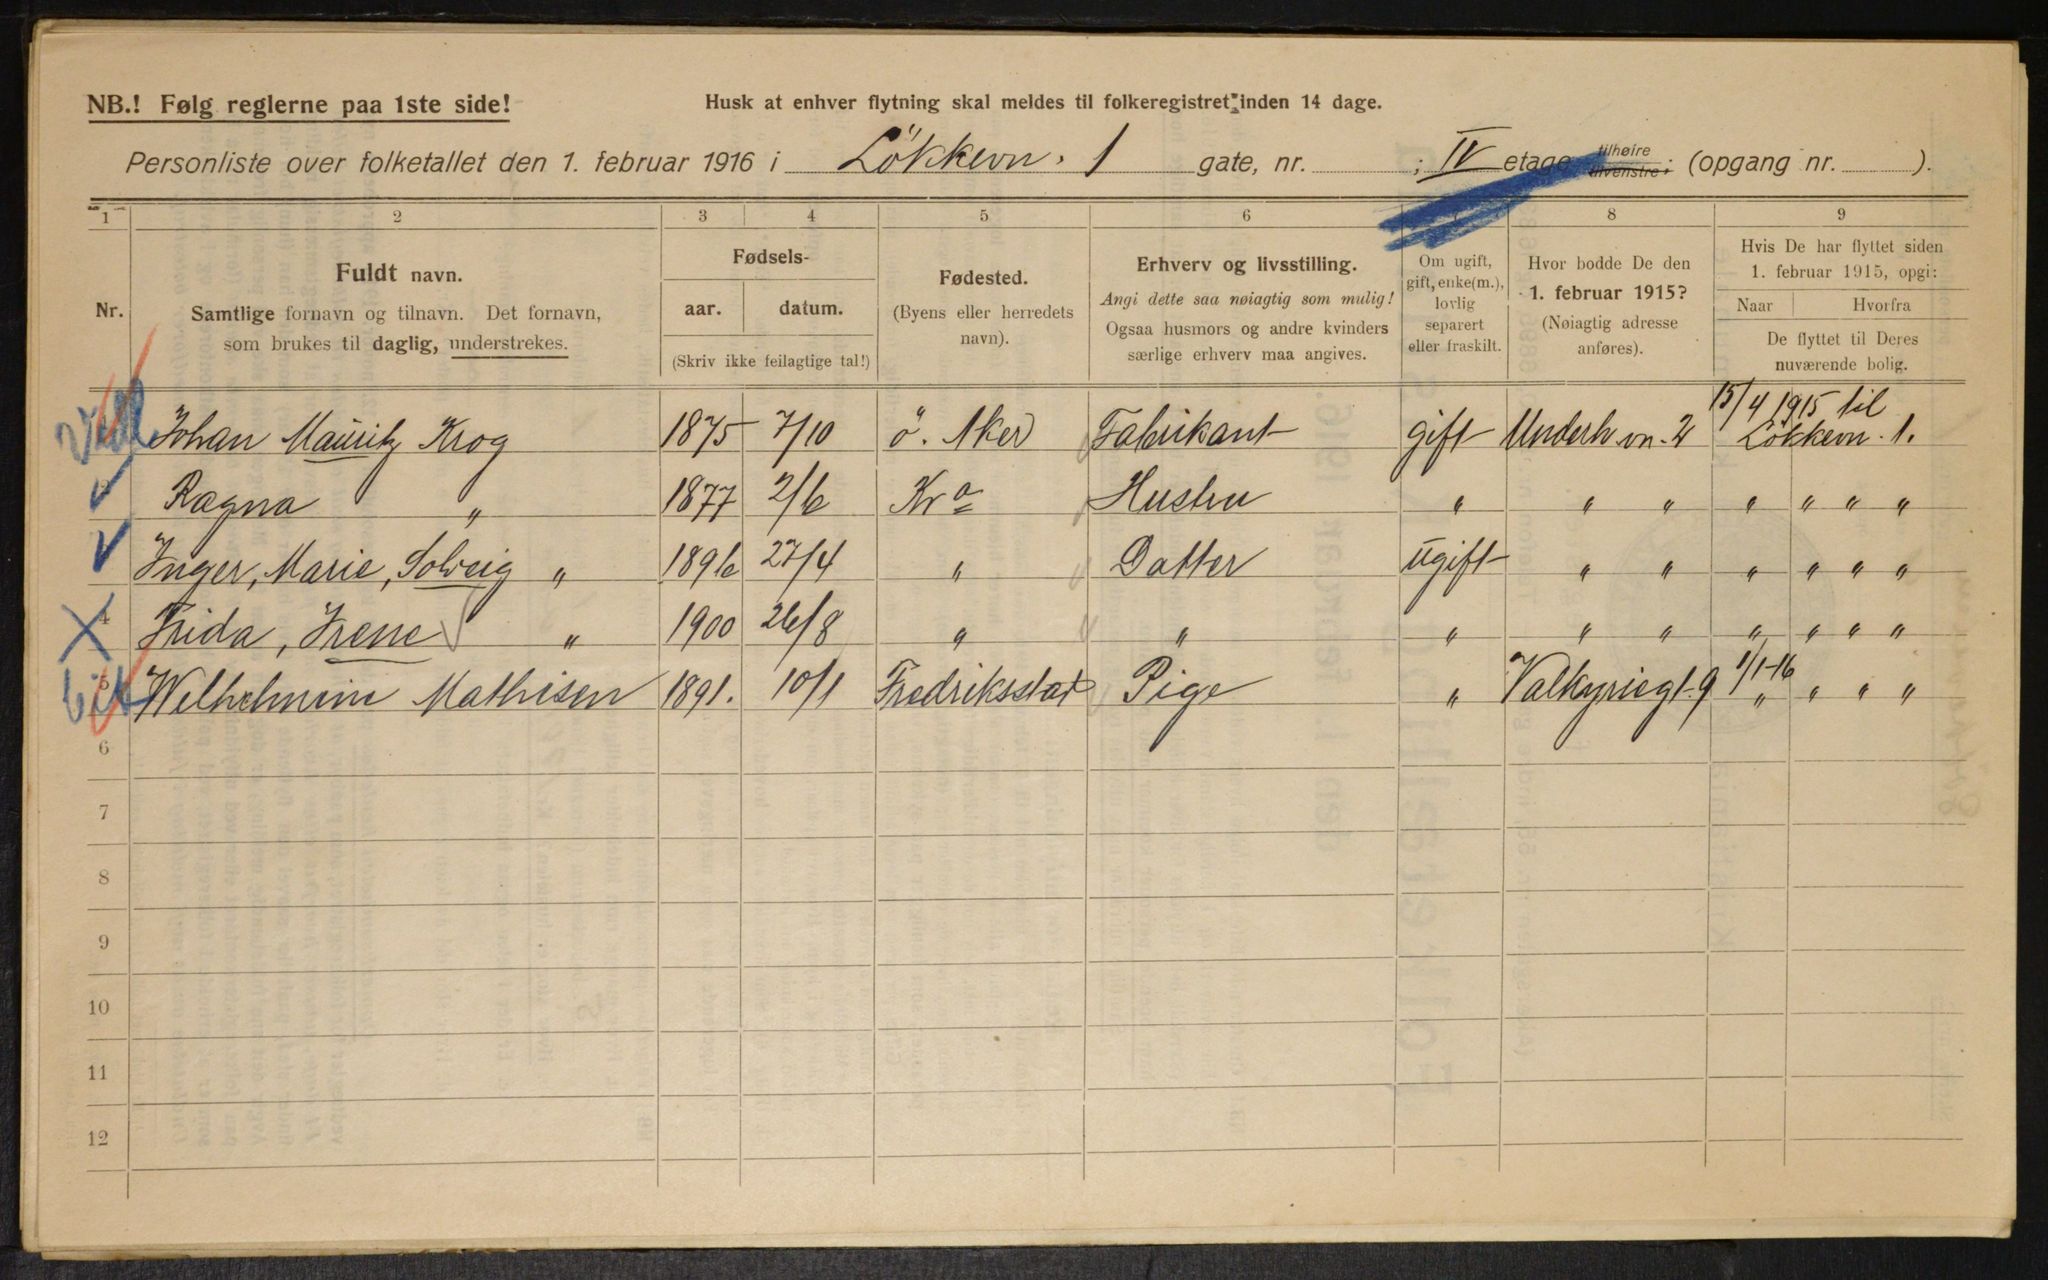 NB.! Følg reglerne paa 1ste side!
Husk at enhver flytning skal meldes til folkeregistret inden 14 dage.
Personliste over folketallet den 1. februar 1916 i Løkkevn. 1 gate, nr. ; IV etage tilhøire tilvenstre; (opgang nr. ).
1 2 3 4 5 6 7 8 9
Nr.
Fuldt navn.
Samtlige fornavn og tilnavn. Det fornavn,
som brukes til daglig, understrekes.
Fødsels-
aar. datum.
(Skriv ikke feilagtige tal!)
Fødested.
(Byens eller herredets
navn).
Erhverv og livsstilling.
Angi dette saa nøiagtig som mulig!
Ogsaa husmors og andre kvinders
særlige erhverv maa angives.
Om ugift,
gift, enke(m.),
lovlig
separert
eller fraskilt.
Hvor bodde De den
1. februar 1915?
(Nøiagtig adresse
anføres).
Hvis De har flyttet siden
1. februar 1915, opgi:
Naar Hvorfra
De flyttet til Deres
nuværende bolig.
Johan Mauritz Krog 1875 7/10 ö. Aker Fabrikant gift Underh.vn. 2 15/4 1915 til Løkkevn. 1.
Ragna " 1877 2/6 Kra Hustru " " " " " " "
Inger, Marie, Solveig " 1896 27/4 " Datter ugift " " " " " "
4 Frida, Irene " 1900 26/8 " " " " " " " " "
5 Wilhelmine Mathisen 1891. 10/1 Fredriksstad Pige " Valkyriegt. 9 1/1-16 " " " "
6
7
8
9
10
11
12